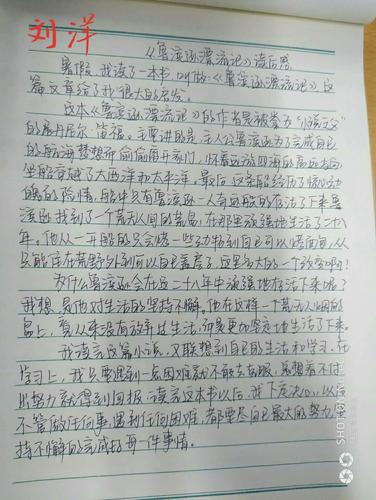 刘洋
《鲁滨逊漂流记》读后感
暑假，我读了一本书，叫做《鲁滨逊漂流记》，这
篇文章给了我很大的启发。
这本《鲁滨逊漂流记》的作者是被拳为“小说之父”
的展丹尼尔·笛福。主要讲的是，主人公鲁滨逊为了完成自己
的航海梦想而偷偷离开家门，怀着远游四海的高远志向，
坐船穿越了大西洋和太平洋。最后，这条船经历了惊心动
魄的险情，船中只有鲁滨逊一人奇迹般的存活了下来。鲁
滨逊找到了一个荒无人间的荒岛，在那里顽强地生活了二十八
年。他从一开始的只会烧一些动物到自己可以烤面包，从
只能住在荒野外到可以自己盖房子，这是多大的一个改变啊！
为什么鲁滨逊会在这二十八年中顽强地存活下来呢？
我想，是他对生活的坚持不懈。他在这样一个荒无人烟的
岛上，看从来没有放弃过生活，而是更加坚定地生活了下来。
我读完这篇小说，又联想到自己的生活和学习。在
学习上，我只要遇到一点困难就不敢去克服，总想着不付
出努力就得到回报。读完这本书以后，我下定决心，以后
不管做任何事，遇到任何困难，都要尽自己最大的努力，坚
持不懈的完成好每一件事情。